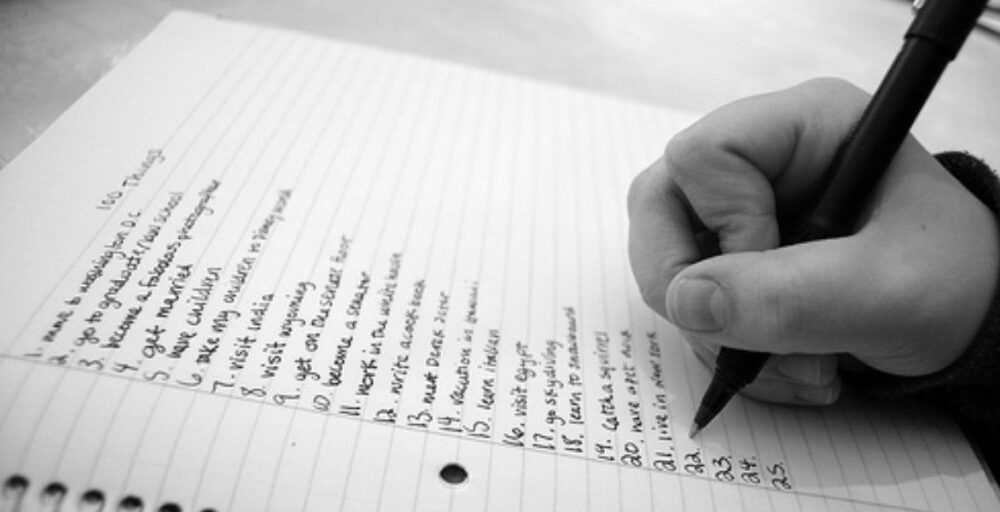 100 Things
1. move to washington D.C
2. go to graduate/law school
3. become a fabulous photographer
4. get married
5. have children
6. take my children to disney world
7. visit india
8. visit wyoming
9. get on the senate floor
10. become a senator
11. work in the white house
12. write a cook book
13. meet Derek Jeter
14. vacation in
15. learn italian
16. visit egypt
17. go skydiving
18. learn to snowboard
19. catch a squirrel
20. have a pet
21. live in new york
22.
23.
24.
25.